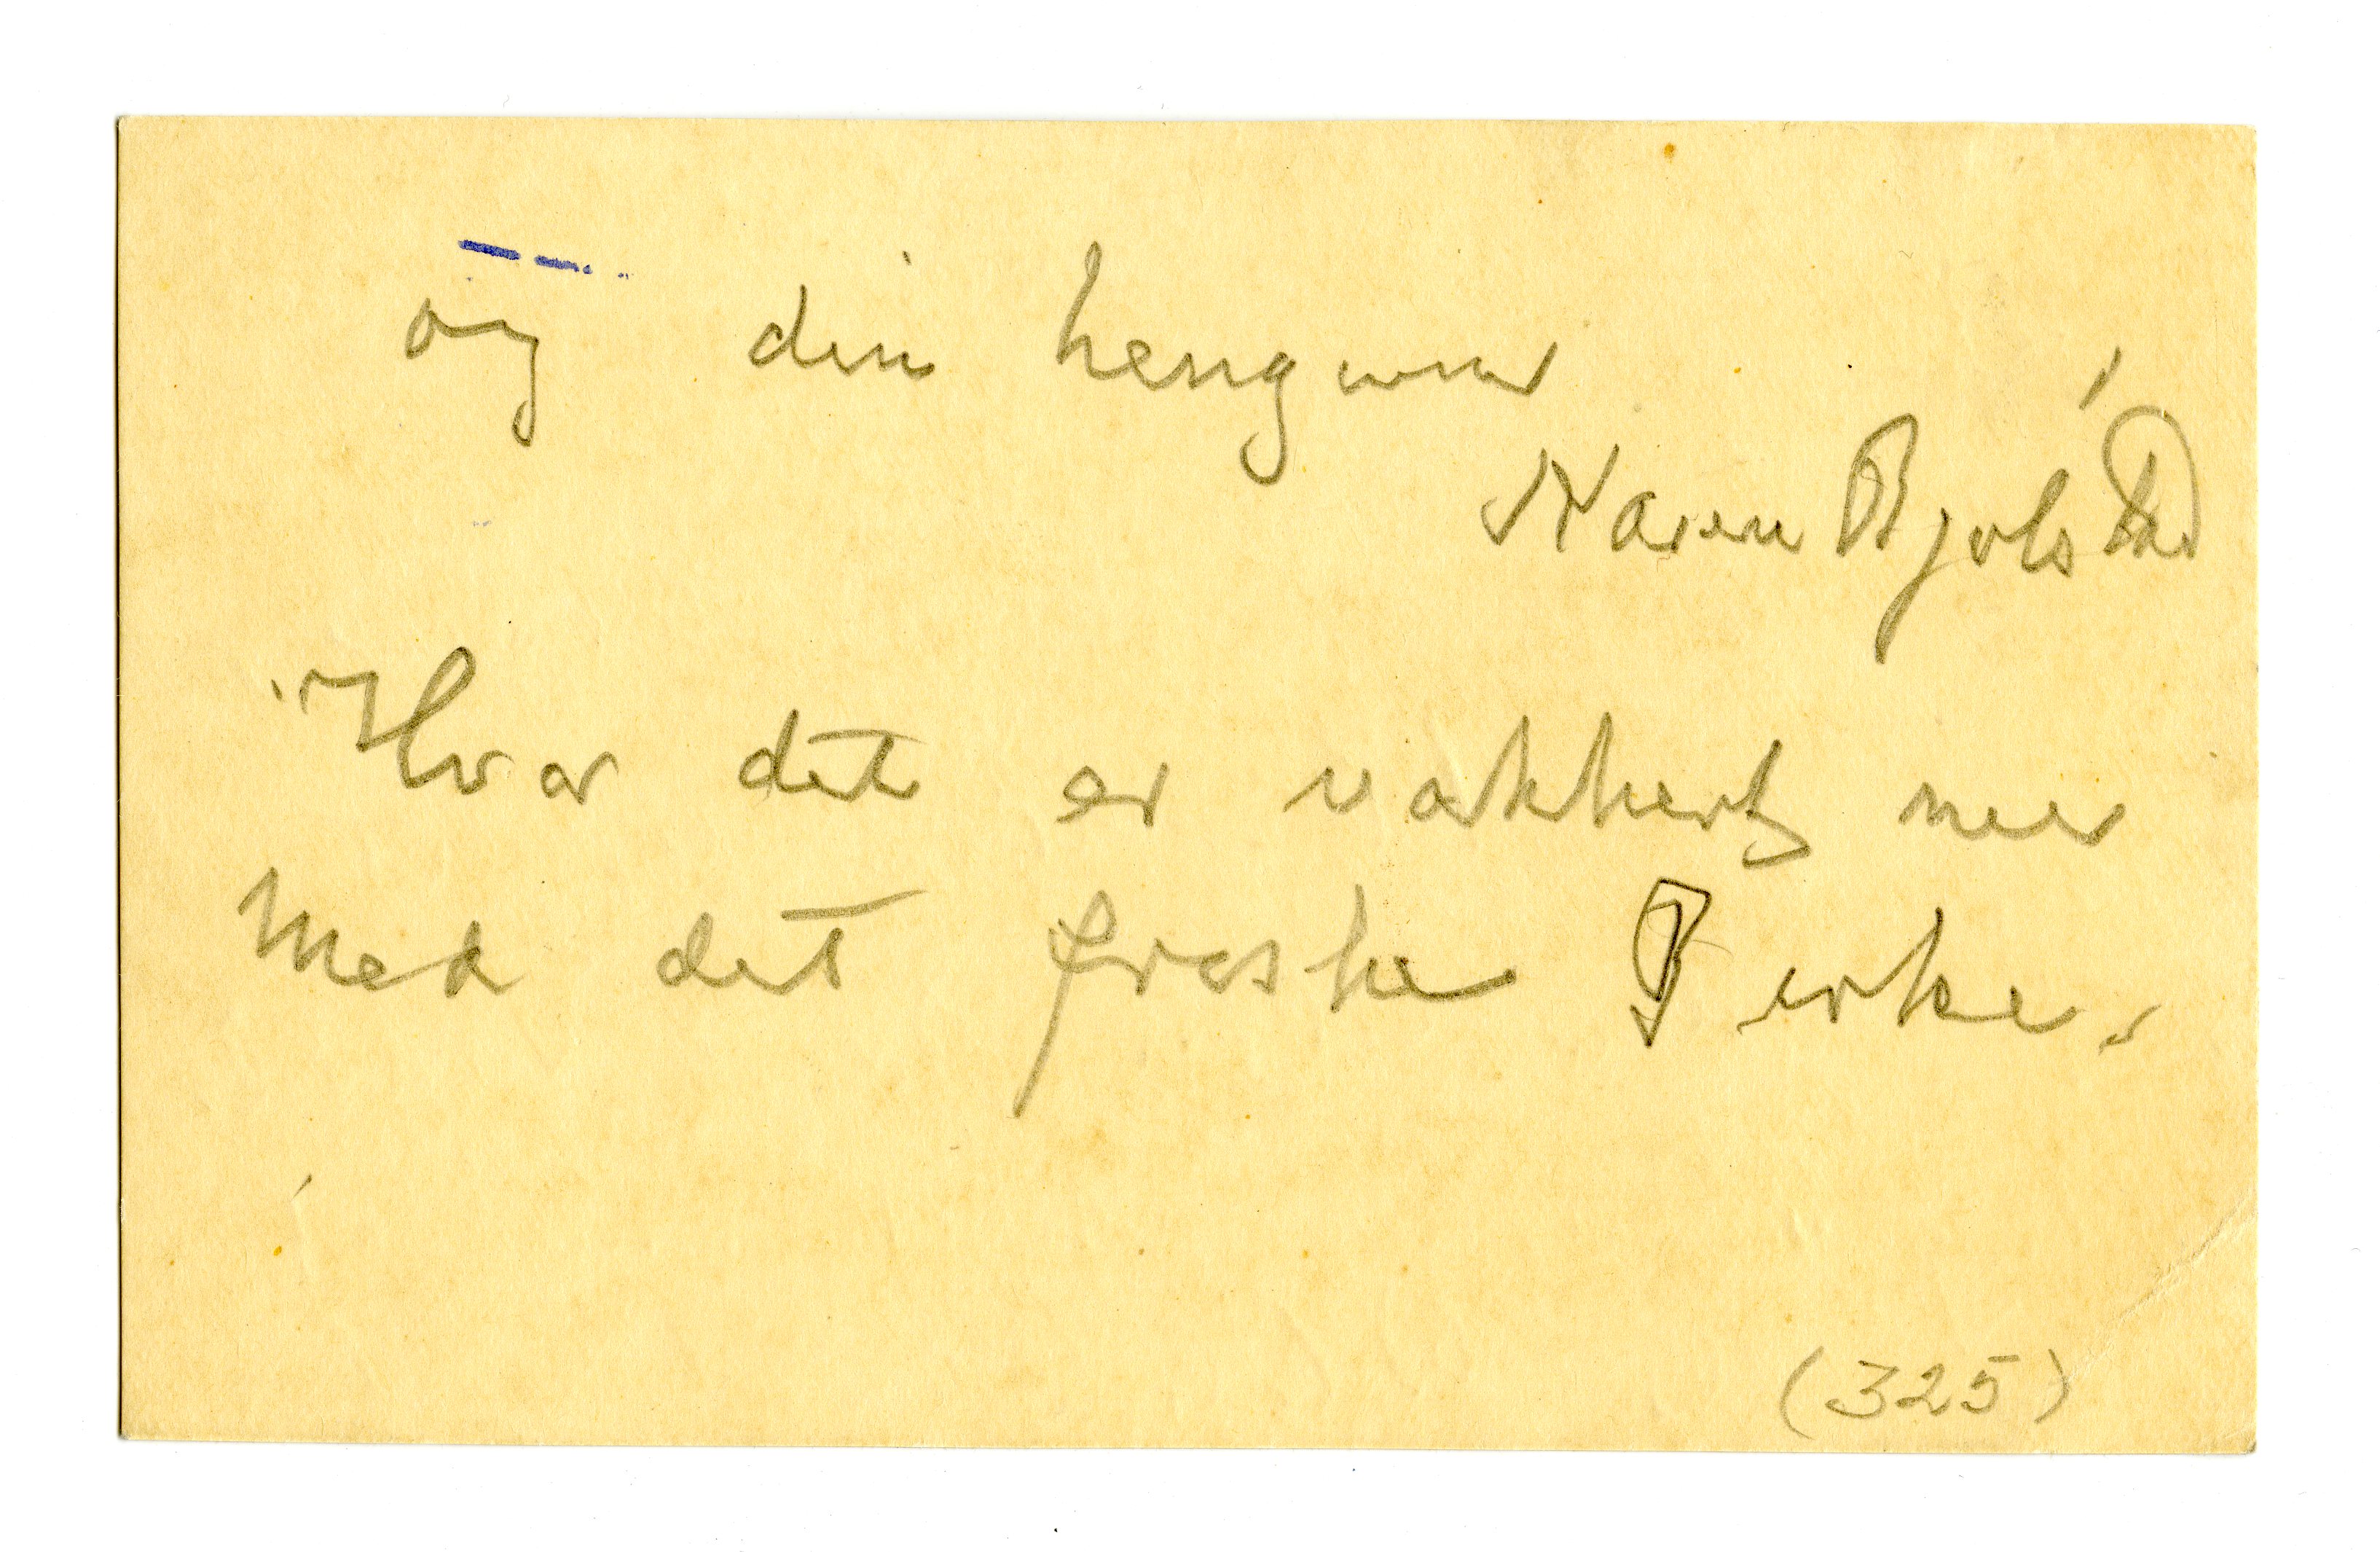 og din hengivne
Karen Bjølstad
Hvor det er vakkert nu
Med det friske Birke.
(325)